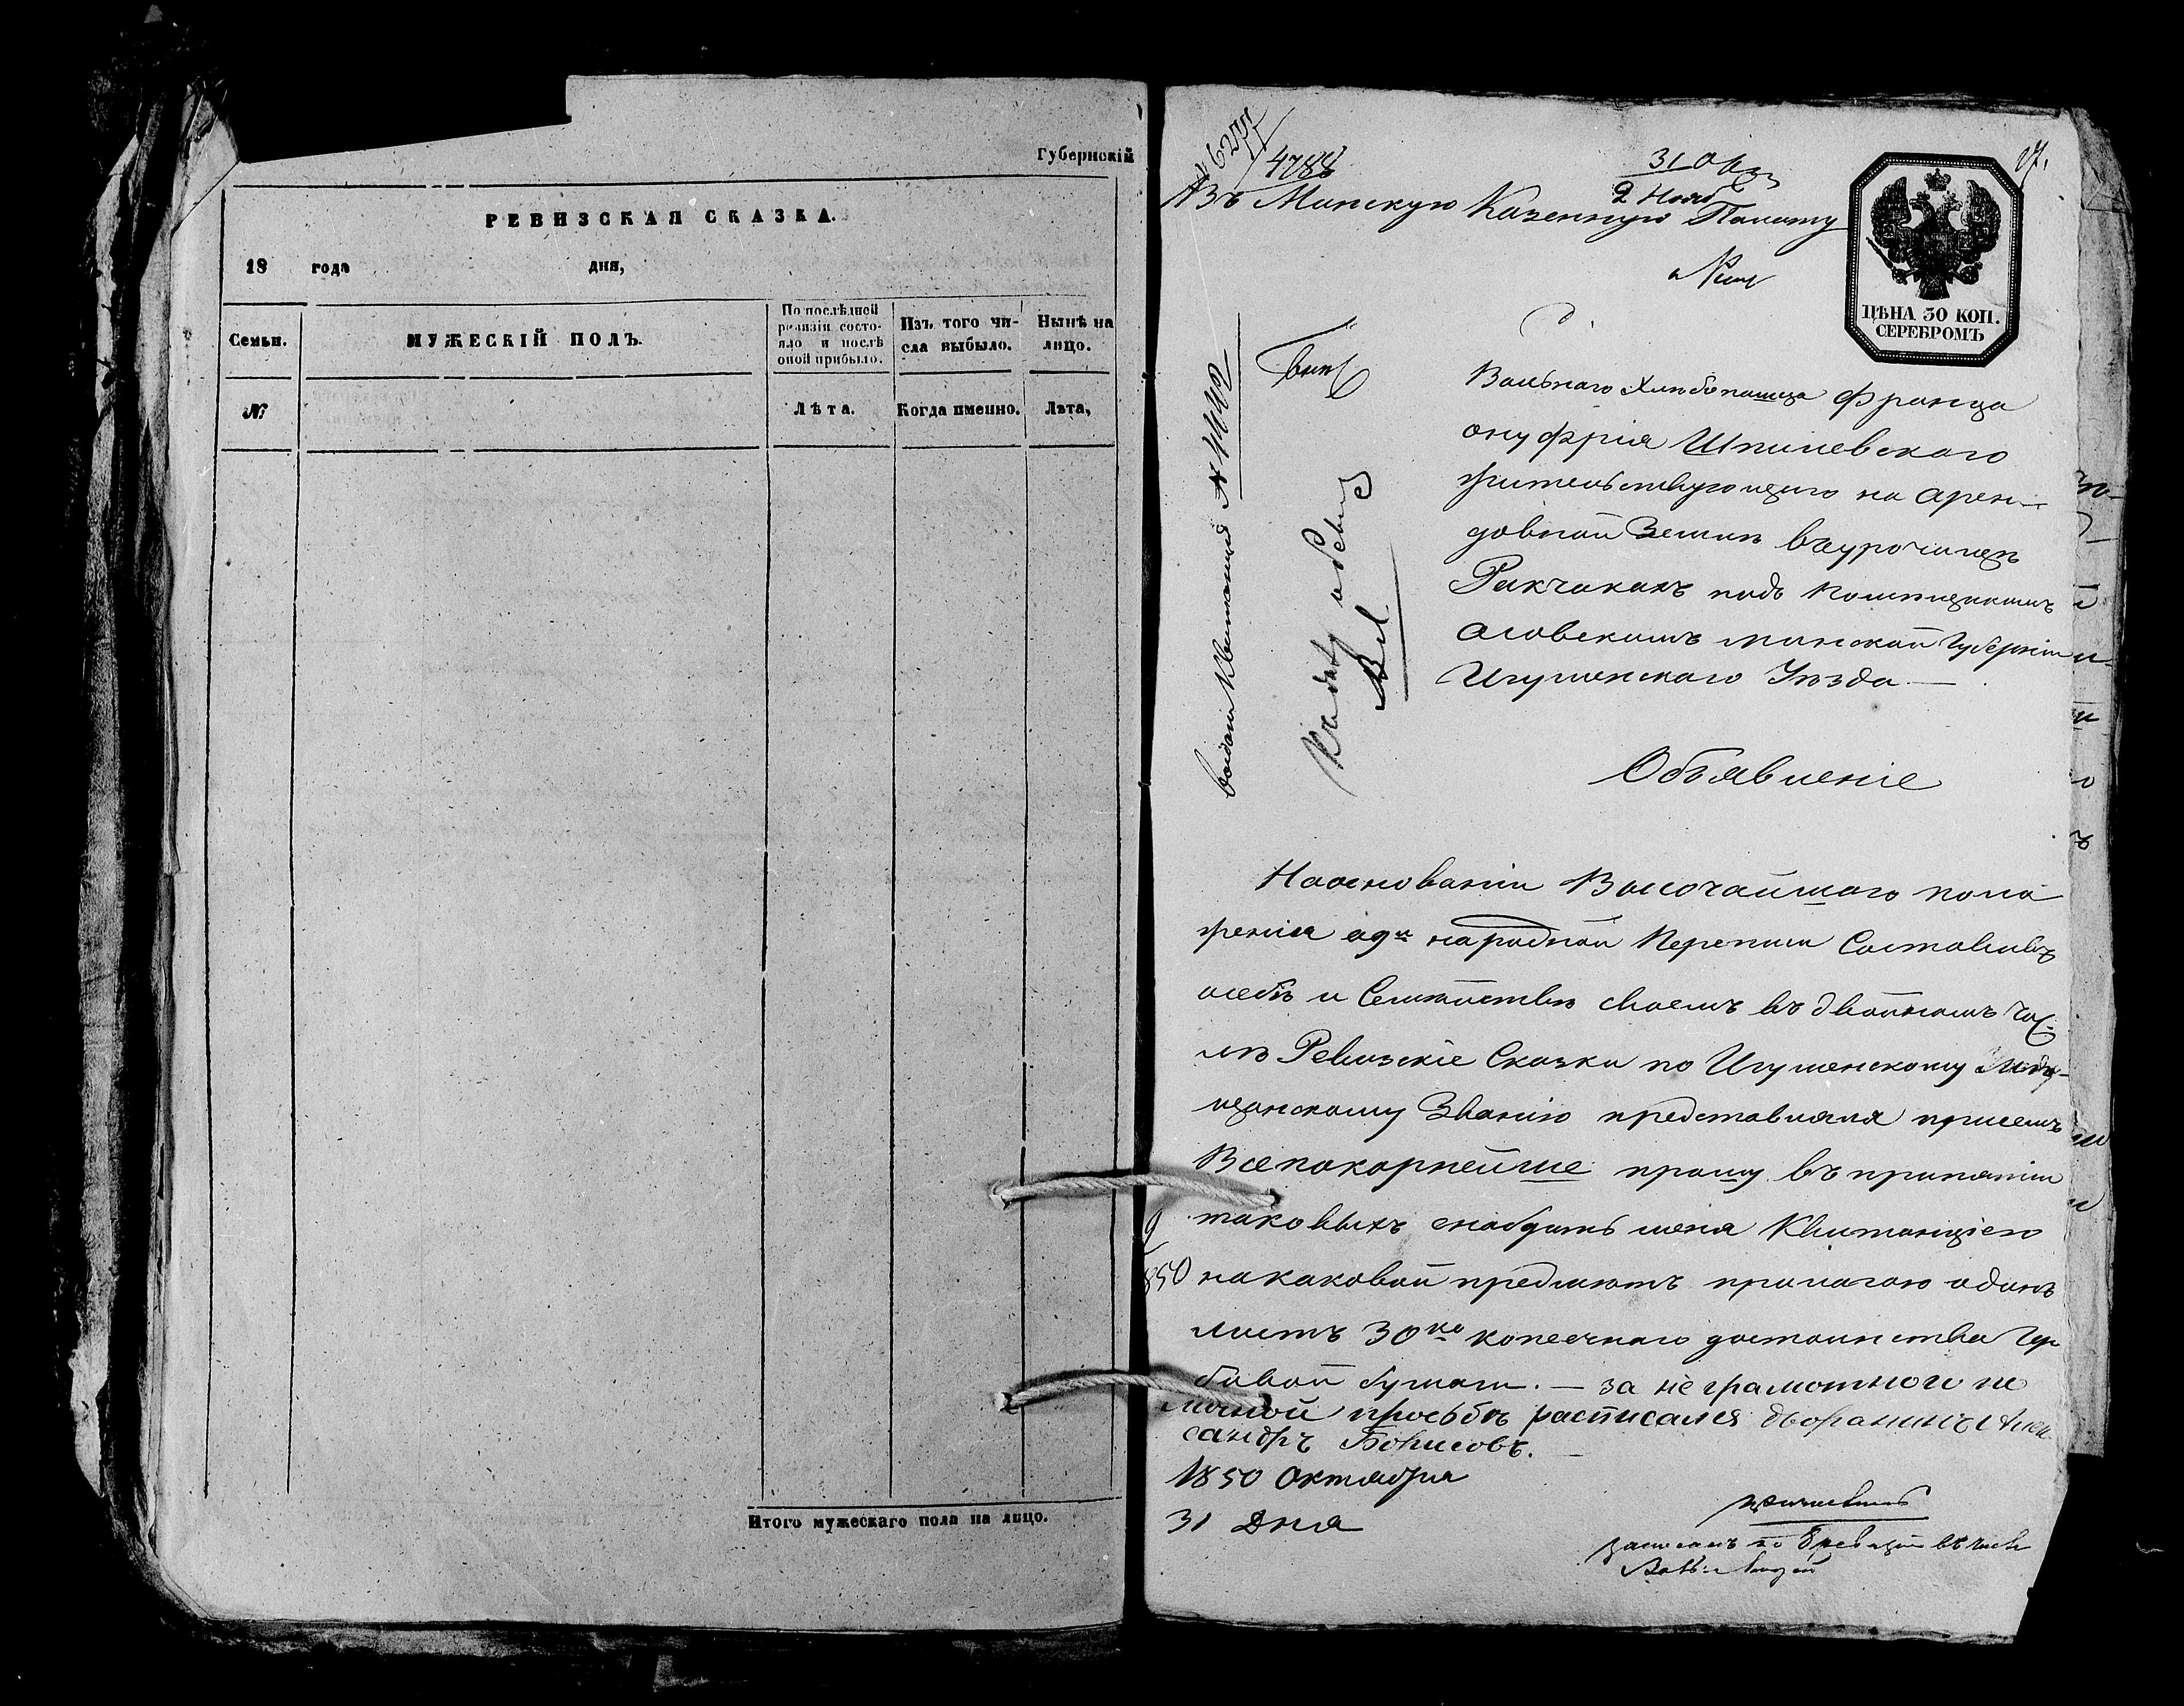 Губернскій
РЕВИЗСКАЯ СКАЗКА.
18 года дня,
Семьи.
МУЖЕСКІЙ ПОЛЪ.
По послѣдней
ревизіи состо-
яло и послѣ
оной прибыло.
Изъ того чи-
сла выбыло.
Нынѣ на
лицо.
№
Лѣта.
Когда именно.
Лѣта,
Итого мужескаго пола на лицо.
4788
31 Ок
2 Нояб
Въ Минскую Казенную Палату
ЦѢНА 30 КОП.
СЕРЕБРОМЪ
Вольнаго Хлѣбопашца Франца
онуфрія Шпилевскаго
жительствующаго на арен-
довной Землѣ вѣурочищѣ
подъ помѣщикомъ
минской Губерніи
Игуменскаго Уѣзда —
Объявленіе
Наоснованіи Высочайшаго поло
женія о 9й народной Переписи Составивъ
осебѣ и Семѣйствѣ своемъ въ двойномъ Чис-
лѣ Ревизскіе Сказки по Игуменскому Мѣ-
щанскому Званію представляя присемъ
Всепокорнейше прошу въ принятіи
таковыхъ снабдить меня Квитанціею
1850 накаковой предметъ прилагаю одинъ
листъ 30ко копеечнаго достоинства Гер
бовой бумаги. — за неграмотного по
личной просьбѣ расписался дворанинъ Алек
сандръ Борисовъ.
1850 Октября
31 Дня
выдана Квитанція №